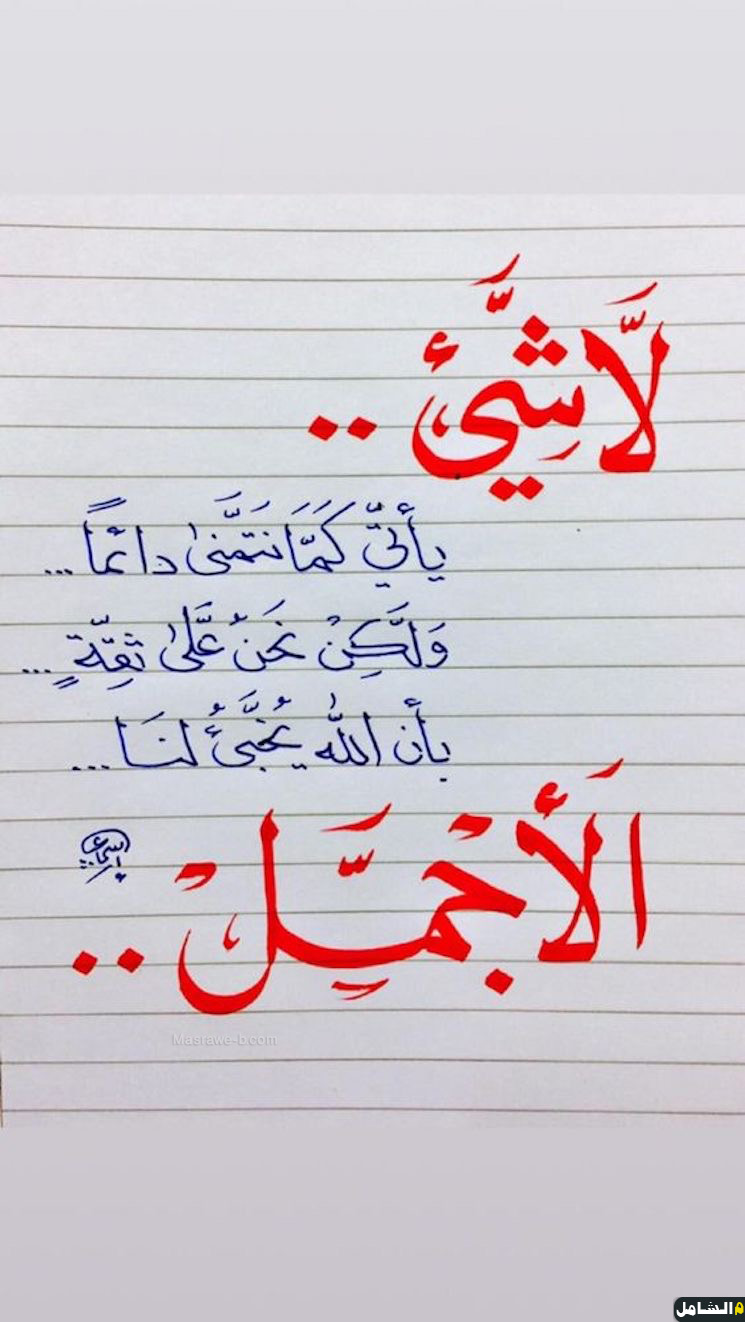 لَّاشَّيِئ ..
يأتيّ كَمََّا نَتَمَّنىٰ دائمًا ...
وَلَّكِنْ نَحَنُ عَّلىٰ ثقِّةٍ ...
بأن اللّٰه يُخَبِّئُ لنَا ...
اَلَأجْمَّلِ ..
Masrawe-b.com
الشامل